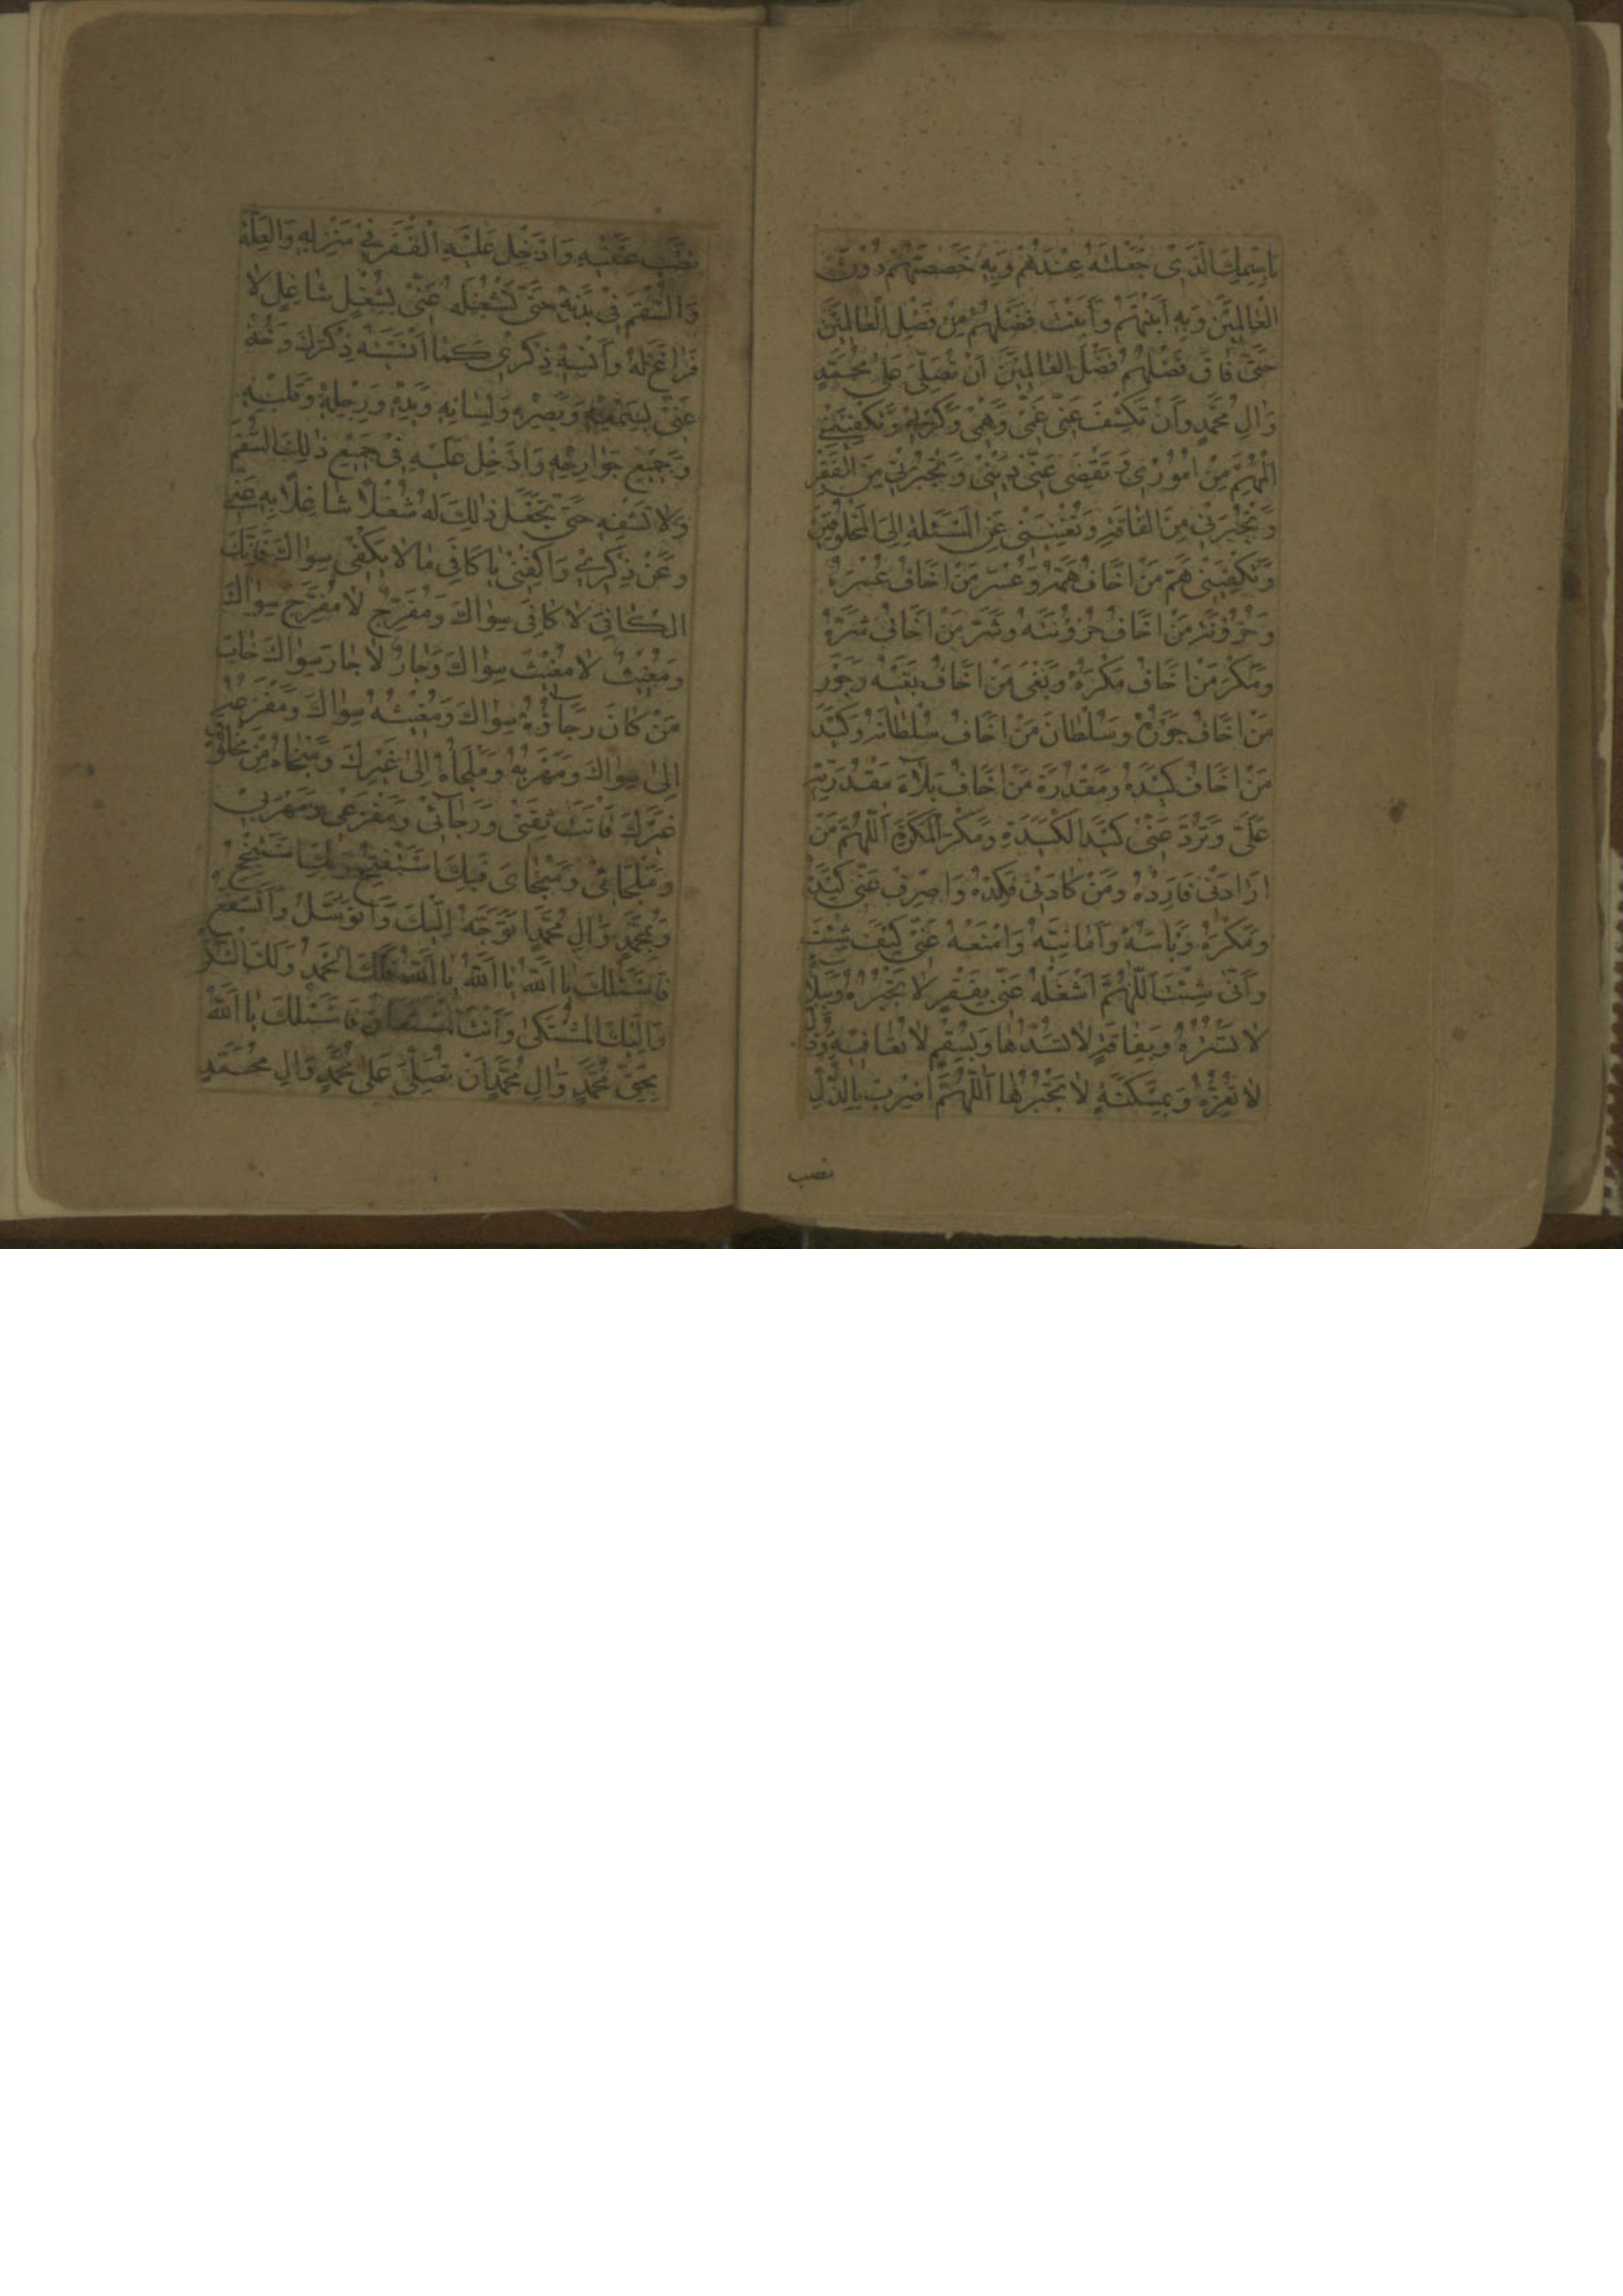 بِاسْمِكَ الَّذِی جَعَلْتَهُ عِنْدَهُمْ وَبِهِ خَصَصْتَهُمْ دُونَ
الْعٰالَمِیْنَ وَبِهِ اَبَنْتَهُمْ وَاَبَنْتَ فَضْلَهُمْ مِنْ فَضْلِ الْعٰالَمِیْنَ
حَتّٰی فٰاقَ فَضْلُهُمْ فَضْلَ الْعٰالَمِیْنَ اَنْ تُصَلِّیَ عَلیٰ مُحَمَّدٍ
وَاٰلِ مُحَمَّدٍ وَاَنْ تَکْشِفَ عَنّی غَمّی وَهَمّی وَکَرْبی وَتَکْفِیَنی
الْمُهِمَّ مِنْ اُمُوْری وَ تَقْضِیَ عَنّی دَیْنی وَ تُجْبِرَنی مِنَ الْفَقْرِ
وَ تُجْبِرَنی مِنَ الْفٰاقَةِ وَ تُغْنِیَنی عَنِ الْمَسْئَلَةِ اِلَی الْمَخْلُوقینَ
وَتَکْفِیَنی هَمَّ مَنْ اَخٰافُ هَمَّهُ وَعُسْرَ مَنْ اَخٰافُ عُسْرَهُ
وَ حُزُوْنَةَ مَنْ اَخٰافُ حُزُوْنَتَهُ وَشَرَّ مَنْ اَخٰافُ شَرَّهُ
وَمَکْرَ مَنْ اَخٰافُ مَکْرَهُ وَبَغْیَ مَنْ اَخٰافُ بَغْیَهُ وَجَوْرَ
مَنْ اَخٰافُ جَوْرَهُ وَسُلْطٰانَ مَنْ اَخٰافُ سُلْطٰانَهُ وَکَیْدَ
مَنْ اَخٰافُ کَیْدَهُ وَمَقْدُرَةَ مَنْ اَخٰافُ بَلٰاۤءَ مَقْدُرَتِهِ
عَلَیَّ وَ تَرُدَّ عَنّی کَیْدَ الْکَیَدَةِ وَمَکْرَ الْمَکَرَةِ اَللّٰهُمَّ مَنْ
اَرٰادَنی فَاَرِدْهُ وَمَنْ کٰادَنی فَکِدْهُ وَاصْرِفْ عَنّی کَیْدَهُ
وَمَکْرَهُ وَبَأْسَهُ وَاَمٰانِیَّهُ وَامْنَعْهُ عَنّی کَیْفَ شِئْتَ
وَاَنّیٰ شِئْتَ اَللّٰهُمَّ اشْغَلْهُ عَنّی بِفَقْرٍ لٰا تَجْبُرُهُ وَبِبَلٰاۤءٍ
لٰا تَسْتُرُهُ وَبِفٰاقَةٍ لٰا تَسُدُّهٰا وَبِسُقْمٍ لٰا تُعٰافِیْهِ وَذُلٍّ
لٰا تُعِزُّهُ وَبِمَسْکَنَةٍ لٰا تَجْبُرُهٰا اَللّٰهُمَّ اضْرِبْ بِالذُّلِّ
نصب
نَصْبَ عَیْنَیْهِ وَاَدْخِلْ عَلَیْهِ الْفَقْرَ فی مَنْزِلِهِ وَالْعِلَّةَ
وَالسُّقْمَ فی بَدَنِهِ حَتّٰی تَشْغَلَهُ عَنّی بِشُغْلٍ شٰاغِلٍ لٰا
فَرٰاغَ لَهُ وَاَنْسِهِ ذِکْری کَمٰا اَنْسَیْتَهُ ذِکْرَكَ وَخُذْ
عَنّی بِسَمْعِهِ وَبَصَرِهِ وَلِسٰانِهِ وَیَدِهِ وَرِجْلِهِ وَقَلْبِهِ
وَجَمیْعِ جَوٰارِحِهِ وَاَدْخِلْ عَلَیْهِ فی جَمیْعِ ذٰلِكَ السُّقْمَ
وَلٰا تَشْفِهِ حَتّٰی تَجْعَلَ ذٰلِكَ لَهُ شُغْلًا شٰاغِلًا بِهِ عَنّی
وَعَنْ ذِکْری وَاکْفِنی یٰا کٰافِیَ مٰا لٰا یَکْفی سِوٰاكَ فَاِنَّكَ
الْکٰافی لٰا کٰافِیَ سِوٰاكَ وَمُفَرِّجٌ لٰا مُفَرِّجَ سِوٰاكَ
وَمُغیْثٌ لٰا مُغیْثَ سِوٰاكَ وَجٰارٌ لٰا جٰارَ سِوٰاكَ خٰابَ
مَنْ کٰانَ رَجٰاۤؤُهُ سِوٰاكَ وَمُغیْثُهُ سِوٰاكَ وَمَفْزَعُهُ
اِلیٰ سِوٰاكَ وَمَهْرَبُهُ وَمَلْجَأُهُ اِلیٰ غَیْرِكَ وَمَنْجٰاهُ مِنْ مَخْلُوْقٍ
غَیْرِكَ فَاَنْتَ ثِقَتی وَرَجٰاۤئی وَمَفْزَعی وَمَهْرَبی
وَمَلْجَائی وَمَنْجٰایَ فَبِكَ اَسْتَفْتِحُ وَبِكَ اَسْتَنْجِحُ
وَبِمُحَمَّدٍ وَاٰلِ مُحَمَّدٍ اَتَوَجَّهُ اِلَیْكَ وَاَتَوَسَّلُ وَاَتَشَفَّعُ
فَاَسْئَلُكَ یٰا اَللّٰهُ یٰا اَللّٰهُ یٰا اَللّٰهُ فَلَكَ الْحَمْدُ وَلَكَ الشُّکْرُ
وَاِلَیْكَ الْمُشْتَکیٰ وَاَنْتَ الْمُسْتَعٰانُ فَاَسْئَلُكَ یٰا اَللّٰهُ
بِحَقِّ مُحَمَّدٍ وَاٰلِ مُحَمَّدٍ اَنْ تُصَلِّیَ عَلیٰ مُحَمَّدٍ وَاٰلِ مُحَمَّدٍ